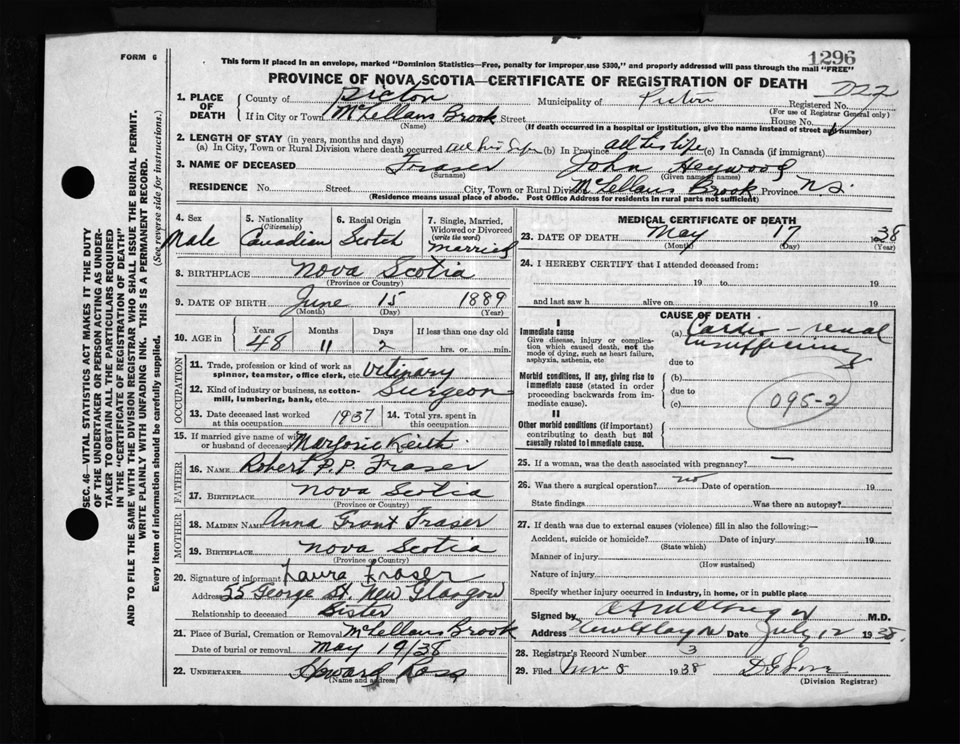 FORM 6
1296
This form if placed in an envelope, marked "Dominion Statistics—Free, penalty for improper use $300," and properly addressed will pass through the mail "FREE"
PROVINCE OF NOVA SCOTIA—CERTIFICATE OF REGISTRATION OF DEATH
1. PLACE OF DEATH
County of Pictou Municipality of Pictou Registered No.
(For use of Registrar General only)
If in City or Town McLellans Brook Street House No.
(Name) (If death occurred in a hospital or institution, give the name instead of street and number)
2. LENGTH OF STAY (in years, months and days)
(a) In City, Town or Rural Division where death occurred all his life (b) In Province all his life (c) In Canada (if immigrant)
3. NAME OF DECEASED Fraser John Heywood
(Surname) (Given name or names)
RESIDENCE No. Street City, Town or Rural Division McLellans Brook Province N.S.
(Residence means usual place of abode. Post Office Address for residents in rural parts not sufficient)
4. Sex Male
5. Nationality (Citizenship) Canadian
6. Racial Origin Scotch
7. Single, Married, Widowed or Divorced (write the word) Married
8. BIRTHPLACE Nova Scotia
(Province or Country)
9. DATE OF BIRTH June 15 1889
(Month) (Day) (Year)
10. AGE in Years Months Days If less than one day old
48 11 2 hrs. or min.
OCCUPATION
11. Trade, profession or kind of work as spinner, teamster, office clerk, etc. Vitinary
12. Kind of industry or business, as cotton-mill, lumbering, bank, etc. Surgeon
13. Date deceased last worked at this occupation 1937
14. Total yrs. spent in this occupation
15. If married give name of wife or husband of deceased Marjorie Keith
FATHER
16. NAME Robert P.P. Fraser
17. BIRTHPLACE Nova Scotia
(Province or Country)
MOTHER
18. MAIDEN NAME Anna Grant Fraser
19. BIRTHPLACE Nova Scotia
(Province or Country)
20. Signature of informant Laura Fraser
Address 25 George St. New Glasgow
Relationship to deceased Sister
21. Place of Burial, Cremation or Removal McLellans Brook
Date of burial or removal May 19/38
22. UNDERTAKER Howard Ross
(Name and address)
MEDICAL CERTIFICATE OF DEATH
23. DATE OF DEATH May 17 1938
(Month) (Day) (Year)
24. I HEREBY CERTIFY that I attended deceased from:
19 to 19
and last saw h alive on 19
CAUSE OF DEATH
I
Immediate cause
Give disease, injury or complication which caused death, not the mode of dying, such as heart failure, asphyxia, asthenia, etc
(a) Cardio-renal
insufficiency
due to
Morbid conditions, if any, giving rise to immediate cause (stated in order proceeding backwards from immediate cause).
(b)
due to
(c)
095-2
II
Other morbid conditions (if important) contributing to death but not causally related to immediate cause.
25. If a woman, was the death associated with pregnancy? —
26. Was there a surgical operation? no Date of operation 19
State findings Was there an autopsy?
27. If death was due to external causes (violence) fill in also the following:—
Accident, suicide or homicide? Date of injury 19
(State which)
Manner of injury
(How sustained)
Nature of injury
Specify whether injury occurred in industry, in home, or in public place
Signed by M.D.
Address New Glasgow Date July 12 1938.
28. Registrar's Record Number 3
29. Filed Nov 8 1938
(Division Registrar)
SEC. 46—VITAL STATISTICS ACT MAKES IT THE DUTY
OF THE UNDERTAKER OR PERSON ACTING AS UNDER-
TAKER TO OBTAIN ALL THE PARTICULARS REQUIRED
IN THE "CERTIFICATE OF REGISTRATION OF DEATH"
AND TO FILE THE SAME WITH THE DIVISION REGISTRAR WHO SHALL ISSUE THE BURIAL PERMIT.
WRITE PLAINLY WITH UNFADING INK. THIS IS A PERMANENT RECORD.
Every item of information should be carefully supplied. (See reverse side for instructions.)